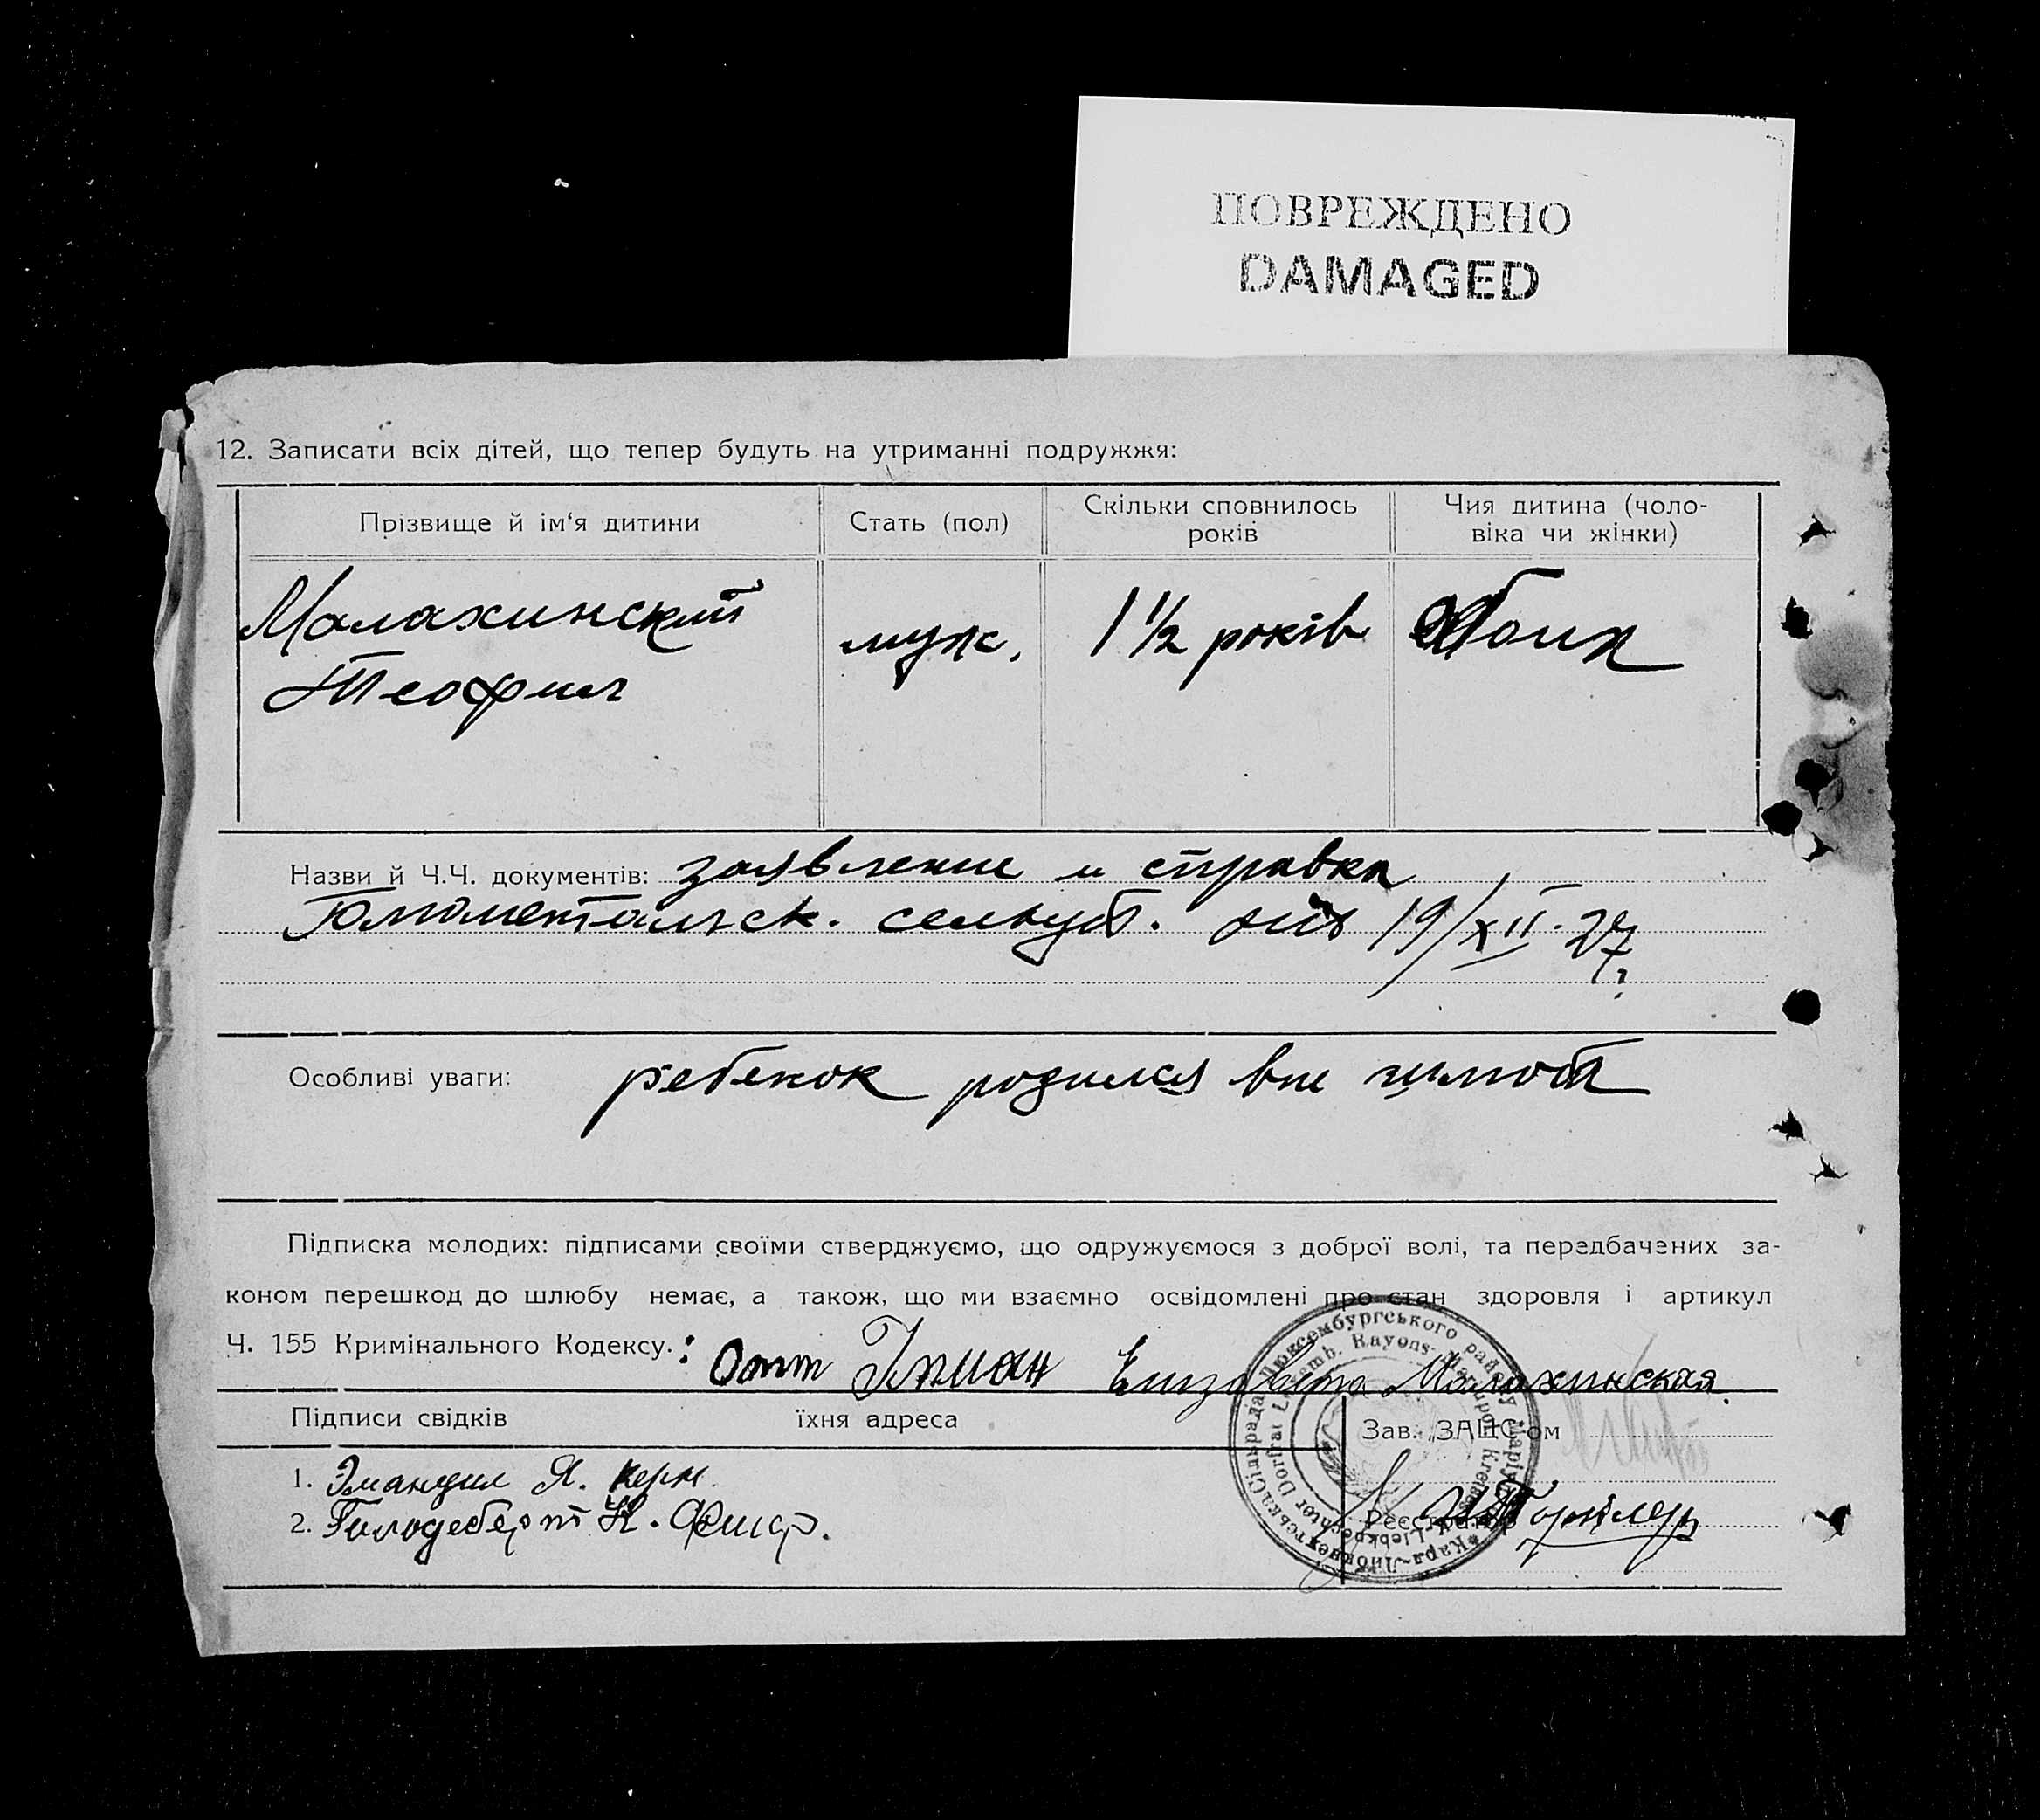 ПОВРЕЖДЕНО
DAMAGED
12. Записати всіх дітей, що тепер будуть на утриманні подружжя:
Прізвище й ім‘я дитини
Стать (пол)
Скільки сповнилось
років
Чия дитина (чоло-
віка чи жінки)
Малахинский
Теофил
муж.
1 ½ років
Назви й Ч.Ч. документів: заявление и справка
сельуб. 19/XII. 27
Особливі уваги: ребенок родился вне
Підписка молодих: підписами своїми стверджуємо, що одружуємося з доброї волі, та передбачених за-
коном перешкод до шлюбу немає, а також, що ми взаємно освідомлені про стан здоровля і артикул
Ч. 155 Кримінального Кодексу.: Отт Елизавета Малахинская
Підписи свідків
їхня адреса
Зав. ЗАЦС‘ом
1. Эмануил Я. Керн
2. Гильдеберт К.
Реєстратор